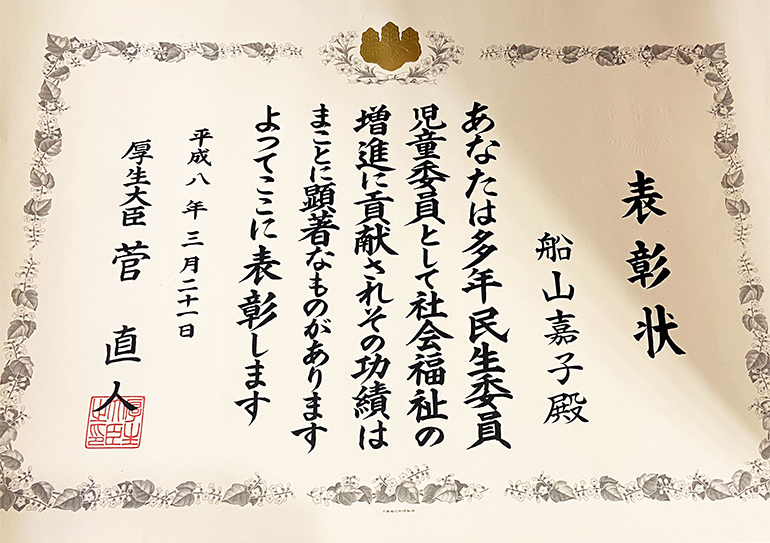 表彰状
船山嘉子殿
あなたは多年民生委員
児童委員として社会福祉の
増進に貢献されその功績は
まことに顕著なものがあります
よってここに表彰します
平成八年三月二十一日
厚生大臣 菅 直人